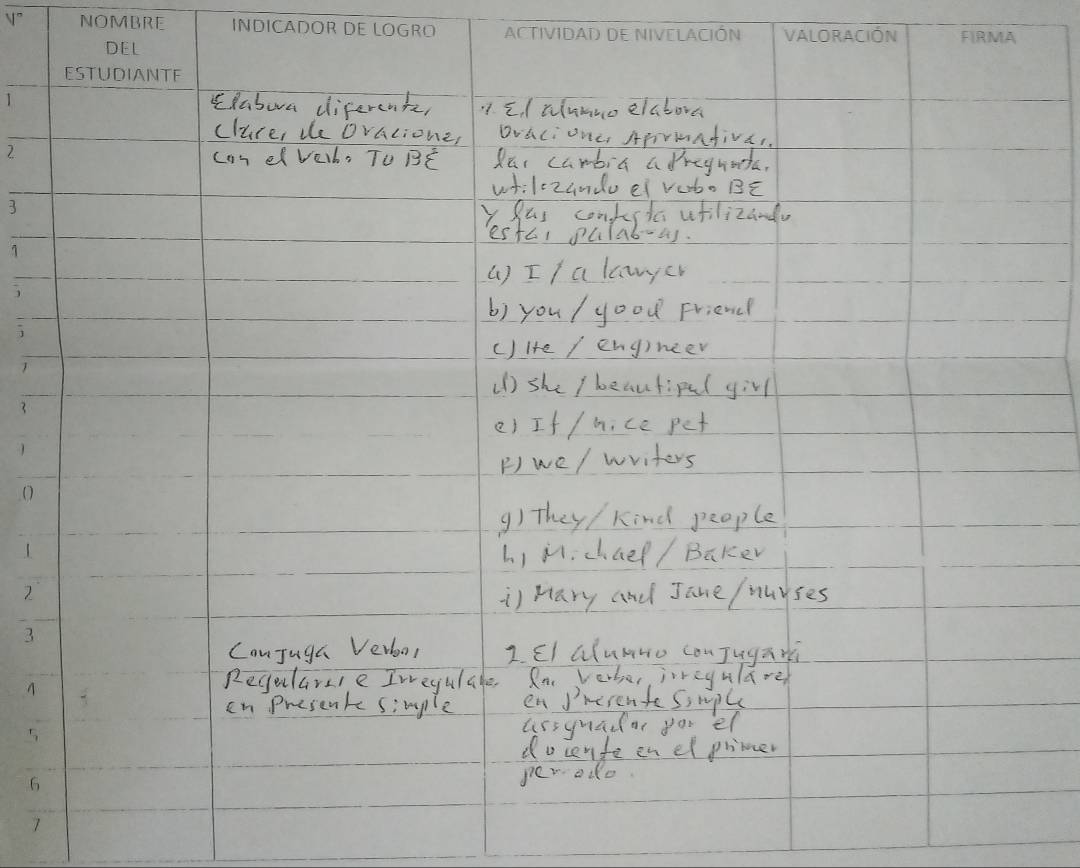 N° NOMBRE DEL ESTUDIANTE INDICADOR DE LOGRO ACTIVIDAD DE NIVELACIÓN VALORACIÓN FIRMA
1
2
3
Elabora diferentes
Clases de Oraciones
con el Verbo TO BE
1. El alumno elabora
Oraciones Afirmativas.
las cambia a Pregunta.
utilizando el verbo BE
y las contesta utilizando
estas palabras.
a) I / a lawyer
b) you / good Friend
c) He / engineer
d) she / beautiful girl
e) It / nice pet
F) we / writers
g) They / Kind people
h) Michael / Baker
i) Mary and Jane / nurses
0
1
2
3
Conjuga Verbos
Regulares e Irregulares
en Presente simple
2. El alumno conjugará
los verbos irregulares
en Presente Simple
assignados por el
docente en el primer
periodo.
5
6
7